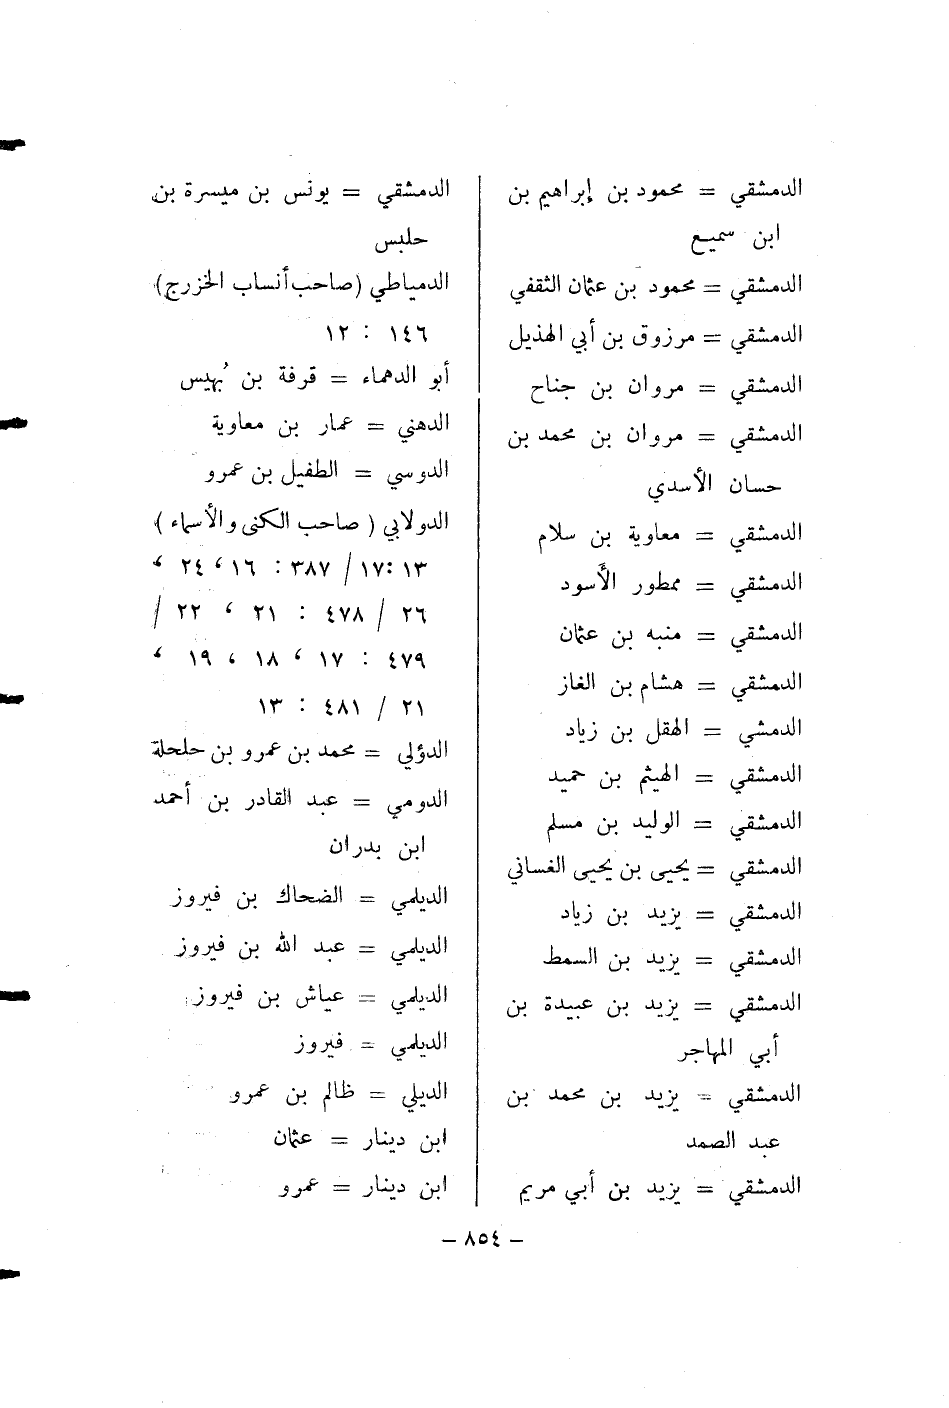 الدمشقي = محمود بن إبراهيم بن
ابن سميع
الدمشقي = محمود بن عثمان الثقفي
الدمشقي = مرزوق بن أبي الهذيل
الدمشقي = مروان بن جناح
الدمشقي = مروان بن محمد بن
حسان الأسدي
الدمشقي = معاوية بن سلام
الدمشقي = ممطور الأسود
الدمشقي = منبه بن عثمان
الدمشقي = هشام بن الغاز
الدمشي = الهقل بن زياد
الدمشقي = الهيثم بن حميد
الدمشقي = الوليد بن مسلم
الدمشقي = يحيى بن يحيى الغساني
الدمشقي = يزيد بن زياد
الدمشقي = يزيد بن السمط
الدمشقي = يزيد بن عبيدة بن
أبي المهاجر
الدمشقي = يزيد بن محمد بن
عبد الصمد
الدمشقي = يزيد بن أبي مريم
الدمشقي = يونس بن ميسرة بن
حلبس
الدمياطي (صاحب أنساب الخزرج)
١٤٦ : ١٢
أبو الدهماء = قرفة بن بُهيس
الدهني = عمار بن معاوية
الدوسي = الطفيل بن عمرو
الدولابي ( صاحب الكنى والأسماء )
١٣ :١٧/ ٣٨٧ : ١٦ ، ٢٤ ،
٢٦ / ٤٧٨ : ٢١ ، ٢٢ /
٤٧٩ : ١٧ ، ١٨ ، ١٩ ،
٢١ / ٤٨١ : ١٣
الدؤلي = محمد بن عمرو بن حلحلة
الدومي = عبد القادر بن أحمد
ابن بدران
الديلمي = الضحاك بن فيروز
الديلمي = عبد الله بن فيروز
الديلمي = عياش بن فيروز
الديلمي = فيروز
الديلي = ظالم بن عمرو
ابن دينار = عثمان
ابن دينار = عمرو
– ٨٥٤ –